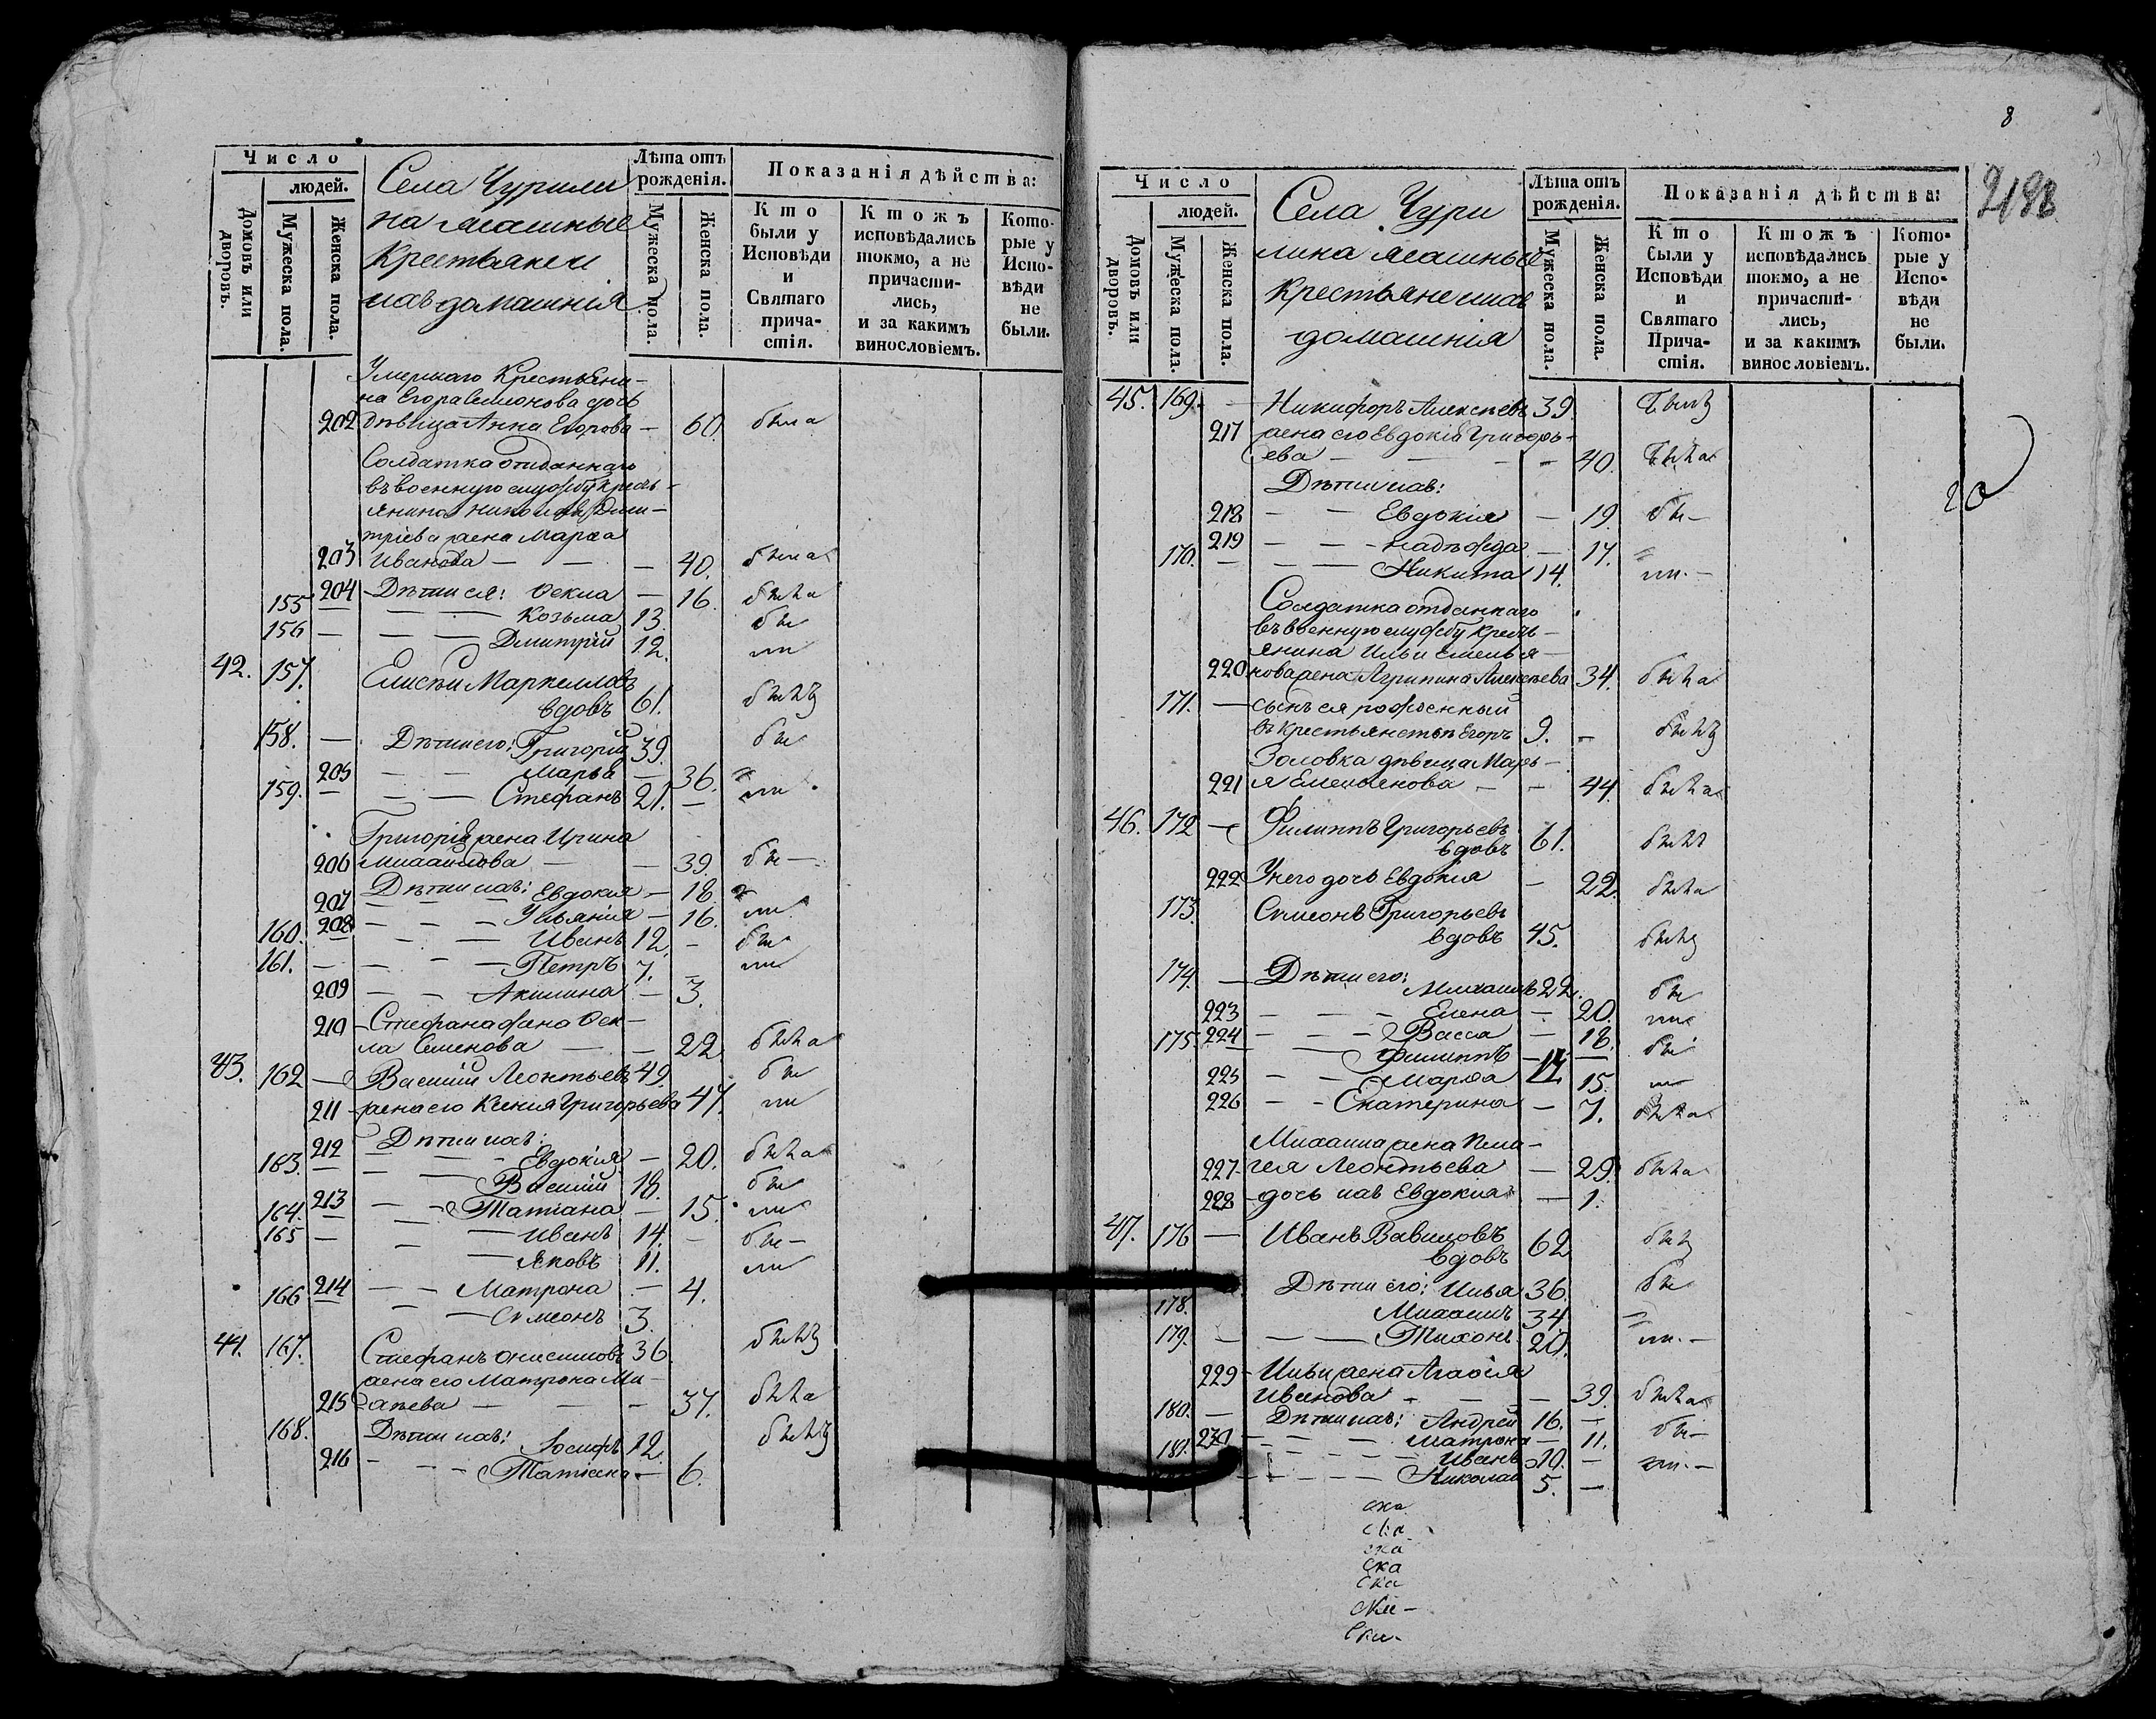 Число
людей.
Домовъ или дворовъ.
Мужеска пола.
Женска пола.
Села Чурили
на
Крестьяне и
ихъ домашнія
Лѣта отъ рожденія.
Мужеска пола.
Женска пола.
Показанія дѣйства:
Кто были у Исповѣди и Святаго причастія.
Ктожъ исповѣдались токмо, а не причастились, и за какимъ винословіемъ.
Которые у Исповѣди не были.
Умершаго Крестьяни-
на Егора Семионова дочь
202 дѣвица Анна Егорова — 60. была
Солдатка отданнаго
въ военную службу крест-
янина Дми-
тріева жена Марѳа
203 Иванова — — — 40. была
204 Дѣти ея: Ѳекла — 16. была
155 — — Козьма 13. бы
156 — — — Дмитрій 12. ли
42. 157. Елисѣй Маркелловъ
вдовъ 61. былъ
158. — Дѣти его: Григорій 39. бы
205 — — Марья — 36. =
159. — — — Стефанъ 21. — ли
Григорія жена Ирина
206 Михайлова — — 39. бы —
207 Дѣти ихъ: Евдокія — 18.
208 — — — Ульянія — 16. ли
160. — — — Иванъ 12. — бы
161. — — — Петръ 7. — ли
209 — — Акилина — 3.
210 Стефана жена Ѳек-
ла Семенова — — 22 была
43. 162 — Василій Леонтьевъ 49. бы
211 жена его Ксенія Григорьева 47. ли
212 Дѣти ихъ: Евдокія — 20. была
163. — — Василій 18. бы
213 — — Татіана — 15. ли
164. — — — Иванъ 14. — бы —
165 — — — Яковъ 11. ли
214 — — Матрона — 4.
166 — — Сѵмеонъ 3.
44. 167. Стефанъ Онисимовъ 36. былъ
жена его Матрона Ми-
215 хѣева — — — 37. была
168. Дѣти ихъ: Іосифъ 12. былъ
216 — — — Татіана — 6.
8
Число
людей.
Домовъ или дворовъ.
Мужеска пола.
Женска пола.
Села Чури
лина
Крестьяне и ихъ
домашнія
Лѣта отъ рожденія.
Мужеска пола.
Женска пола.
Показанія дѣйства:
Кто были у Исповѣди и Святаго Причастія.
Ктожъ исповѣдались токмо, а не причастились, и за какимъ винословіемъ.
Которые у Исповѣди не были.
45. 169. — Никифоръ Алексѣевъ 39. Былъ
217 жена его Евдокія Григорь-
ева — — — — 40. Была
Дѣти ихъ:
218 — — Евдокія — 19. бы —
219 — — — Надѣжда — 17. =
170. — — — Никита 14. ли. —
Солдатка отданнаго
въ военную службу крест-
янина Ильи Емелья-
220 нова жена Агрипина Алексѣева 34. была
171. — сынъ ея рожденный
въ крестьянствѣ Егоръ 9. — былъ
Золовка дѣвица Марь-
221 я Емельянова — — 44. была
46. 172 — Филиппъ Григорьевъ
вдовъ 61. былъ
222 У него дочь Евдокія — 22. была
173. Сѵмеонъ Григорьевъ
вдовъ 45. былъ
174. — Дѣти его:
Михаилъ 22. бы
223 — — — Елена — 20. ли
224 — — — Васса — 18. бы
175. — — Филиппъ — 17
225 — — Марѳа 15. ли
226 — — Екатерина — 7. была
Михаила жена Пела-
227 гея Леонтьева — 29. была
228 дочь ихъ Евдокия — 1.
47. 176 — Иванъ Вавиловъ
вдовъ 62 былъ
Дѣти его: Илья 36. бы
178. Михаилъ 34 =
179. — — — Тихонъ 20. ли. —
229 Ильи жена Агаѳія
Иванова — — — 39. была
180. — Дѣти ихъ: Андрей 16. — бы —
230 — — — Матрона — 11.
181. — — — Иванъ 10. — ли. —
— — — — Николай 5. —
ска
ска
ска
ска
ска